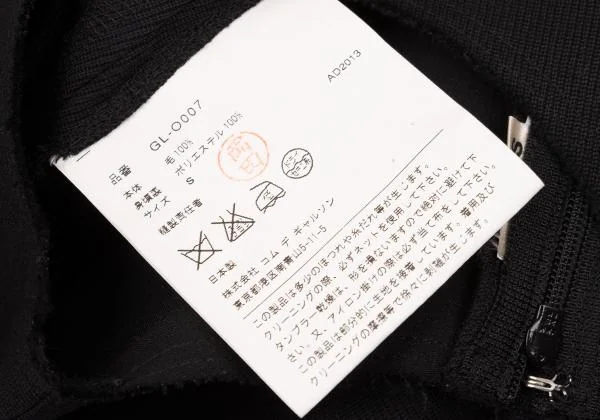 AD2013
品番 GL-O007
本体 毛 100%
身頃裏 ポリエステル 100%
サイズ S
縫製責任者
ドライ
セキユ系
日本製
株式会社 コム デ ギャルソン
東京都港区南青山5-11-5
この製品は多少のほつれや糸だれ等が生じます。
クリーニングの際、必ずネットを使用して下さい。
タンブラー乾燥は、形を損ないますので絶対に避けて下
さい。又、アイロン掛けの際は必ず当て布をして下さい。
この製品は部分的に生地を接着しています。着用及び
クリーニングの摩擦等で徐々に剥離が生じます。
S